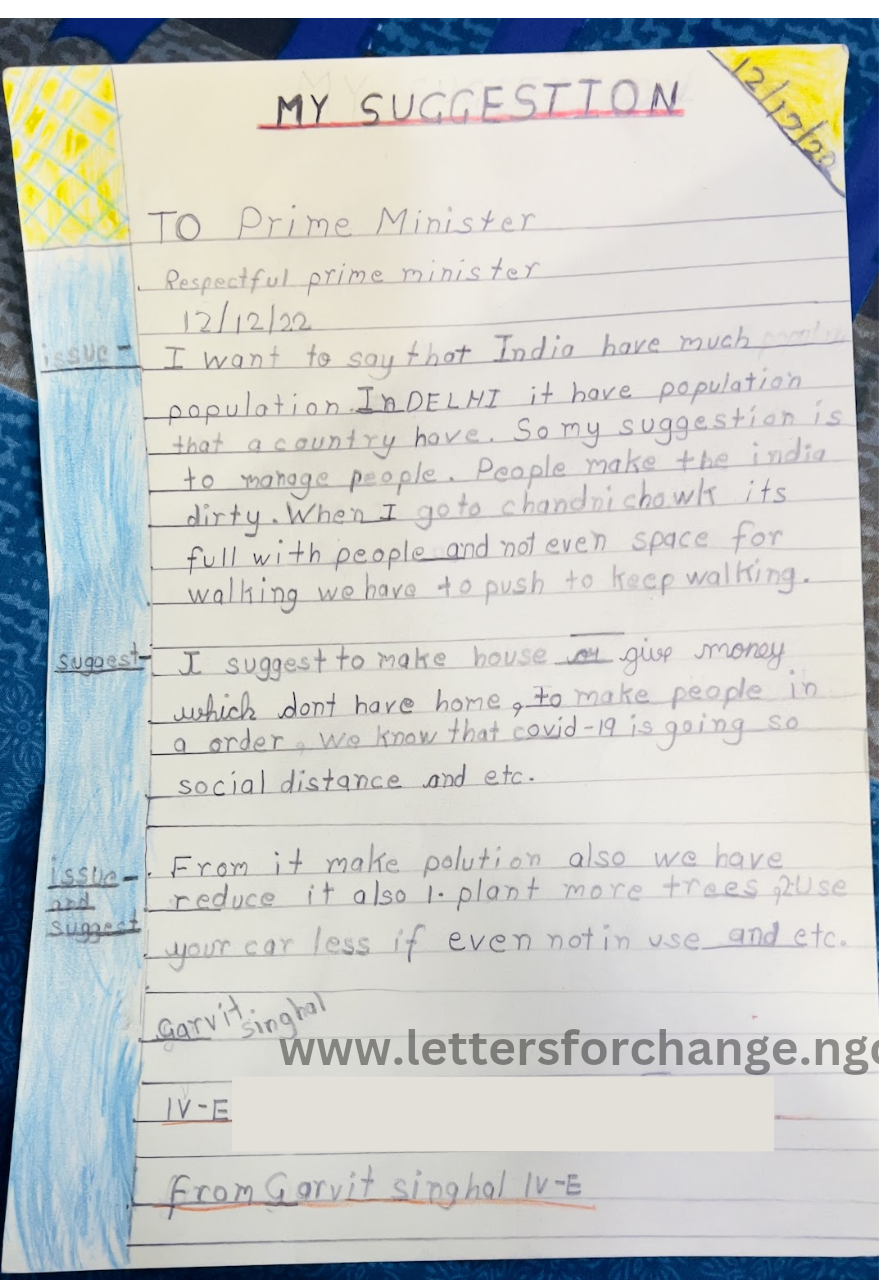 MY SUGGESTION
12/12/22
TO Prime Minister
Respectful prime minister
12/12/22
issue - I want to say that India have much
population. In DELHI it have population
that a country have. So my suggestion is
to manage people. People make the india
dirty. When I go to chandni chowk its
full with people and not even space for
walking we have to push to keep walking.
suggest- I suggest to make house or give money
which dont have home, to make people in
a order, We know that covid-19 is going so
social distance and etc.
issue - From it make polution also we have
and reduce it also 1. plant more trees, 2. Use
suggest your car less if even not in use and etc.
Garvit singhal
www.lettersforchange.ngo
IV-E
From Garvit singhal IV-E